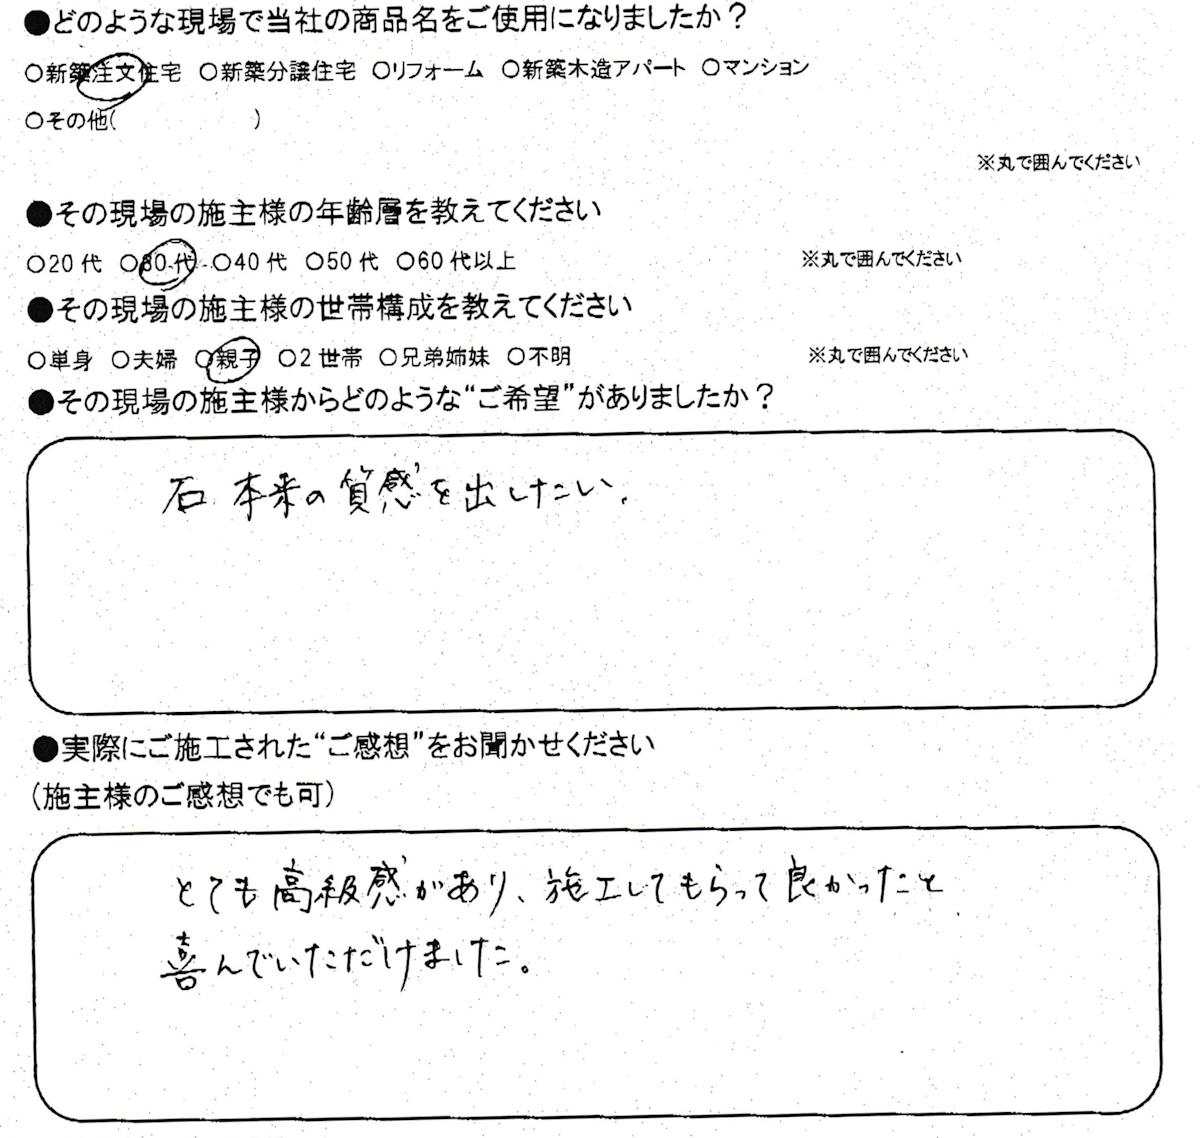 ●どのような現場で当社の商品名をご使用になりましたか？
○新築注文住宅 ○新築分譲住宅 ○リフォーム ○新築木造アパート ○マンション
○その他(　　　　　　)
※丸で囲んでください
●その現場の施主様の年齢層を教えてください
○20代 ○30代 ○40代 ○50代 ○60代以上 ※丸で囲んでください
●その現場の施主様の世帯構成を教えてください
○単身 ○夫婦 ○親子 ○2世帯 ○兄弟姉妹 ○不明 ※丸で囲んでください
●その現場の施主様からどのような“ご希望”がありましたか？
石本来の質感を出したい.
●実際にご施工された“ご感想”をお聞かせください
(施主様のご感想でも可)
とても高級感があり、施工してもらって良かったと
喜んでいただけました。